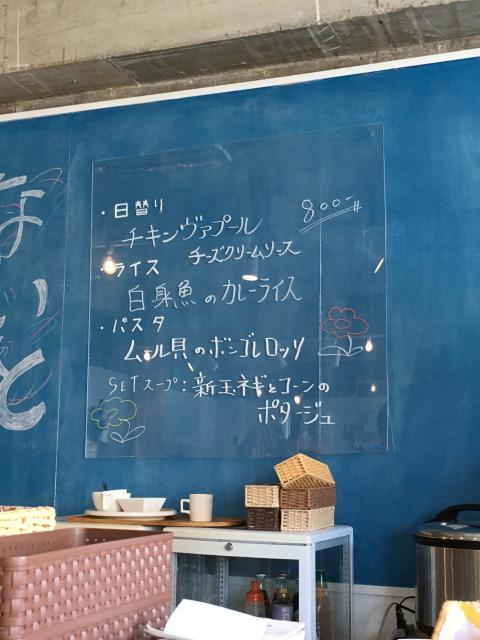 ・日替り 800-
チキンヴァプール
チーズクリームソース
・ライス
白身魚のカレーライス
・パスタ
ムール貝のボンゴレロッソ
SETスープ:新玉ネギとコーンの
ポタージュ